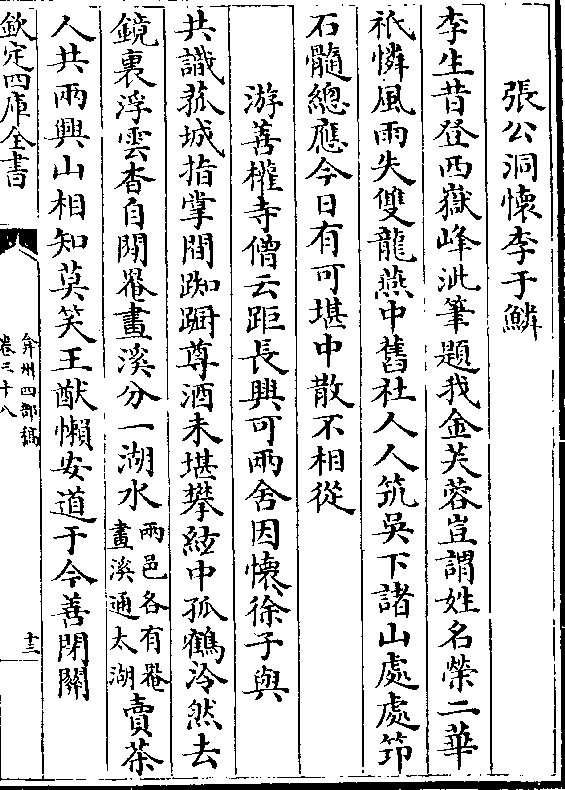 張公洞懷李于鱗
李生昔登西嶽峰泚筆題我金芙蓉豈謂姓名榮二華
祇憐風雨失雙龍燕中舊社人人筑吳下諸山處處笻
石髓總應今日有可堪中散不相從
游善權寺僧云距長興可兩舍因懷徐子與
共識菰城指掌間踟躕尊酒未堪攀絃中孤鶴泠然去
鏡裏浮雲杳自閒罨畫溪分一湖水兩邑各有罨畫溪通太湖賣茶
人共兩興山相知莫笑王猷懶安道于今善閉關
欽定四庫全書
弇州四部稿
卷三十八
十三